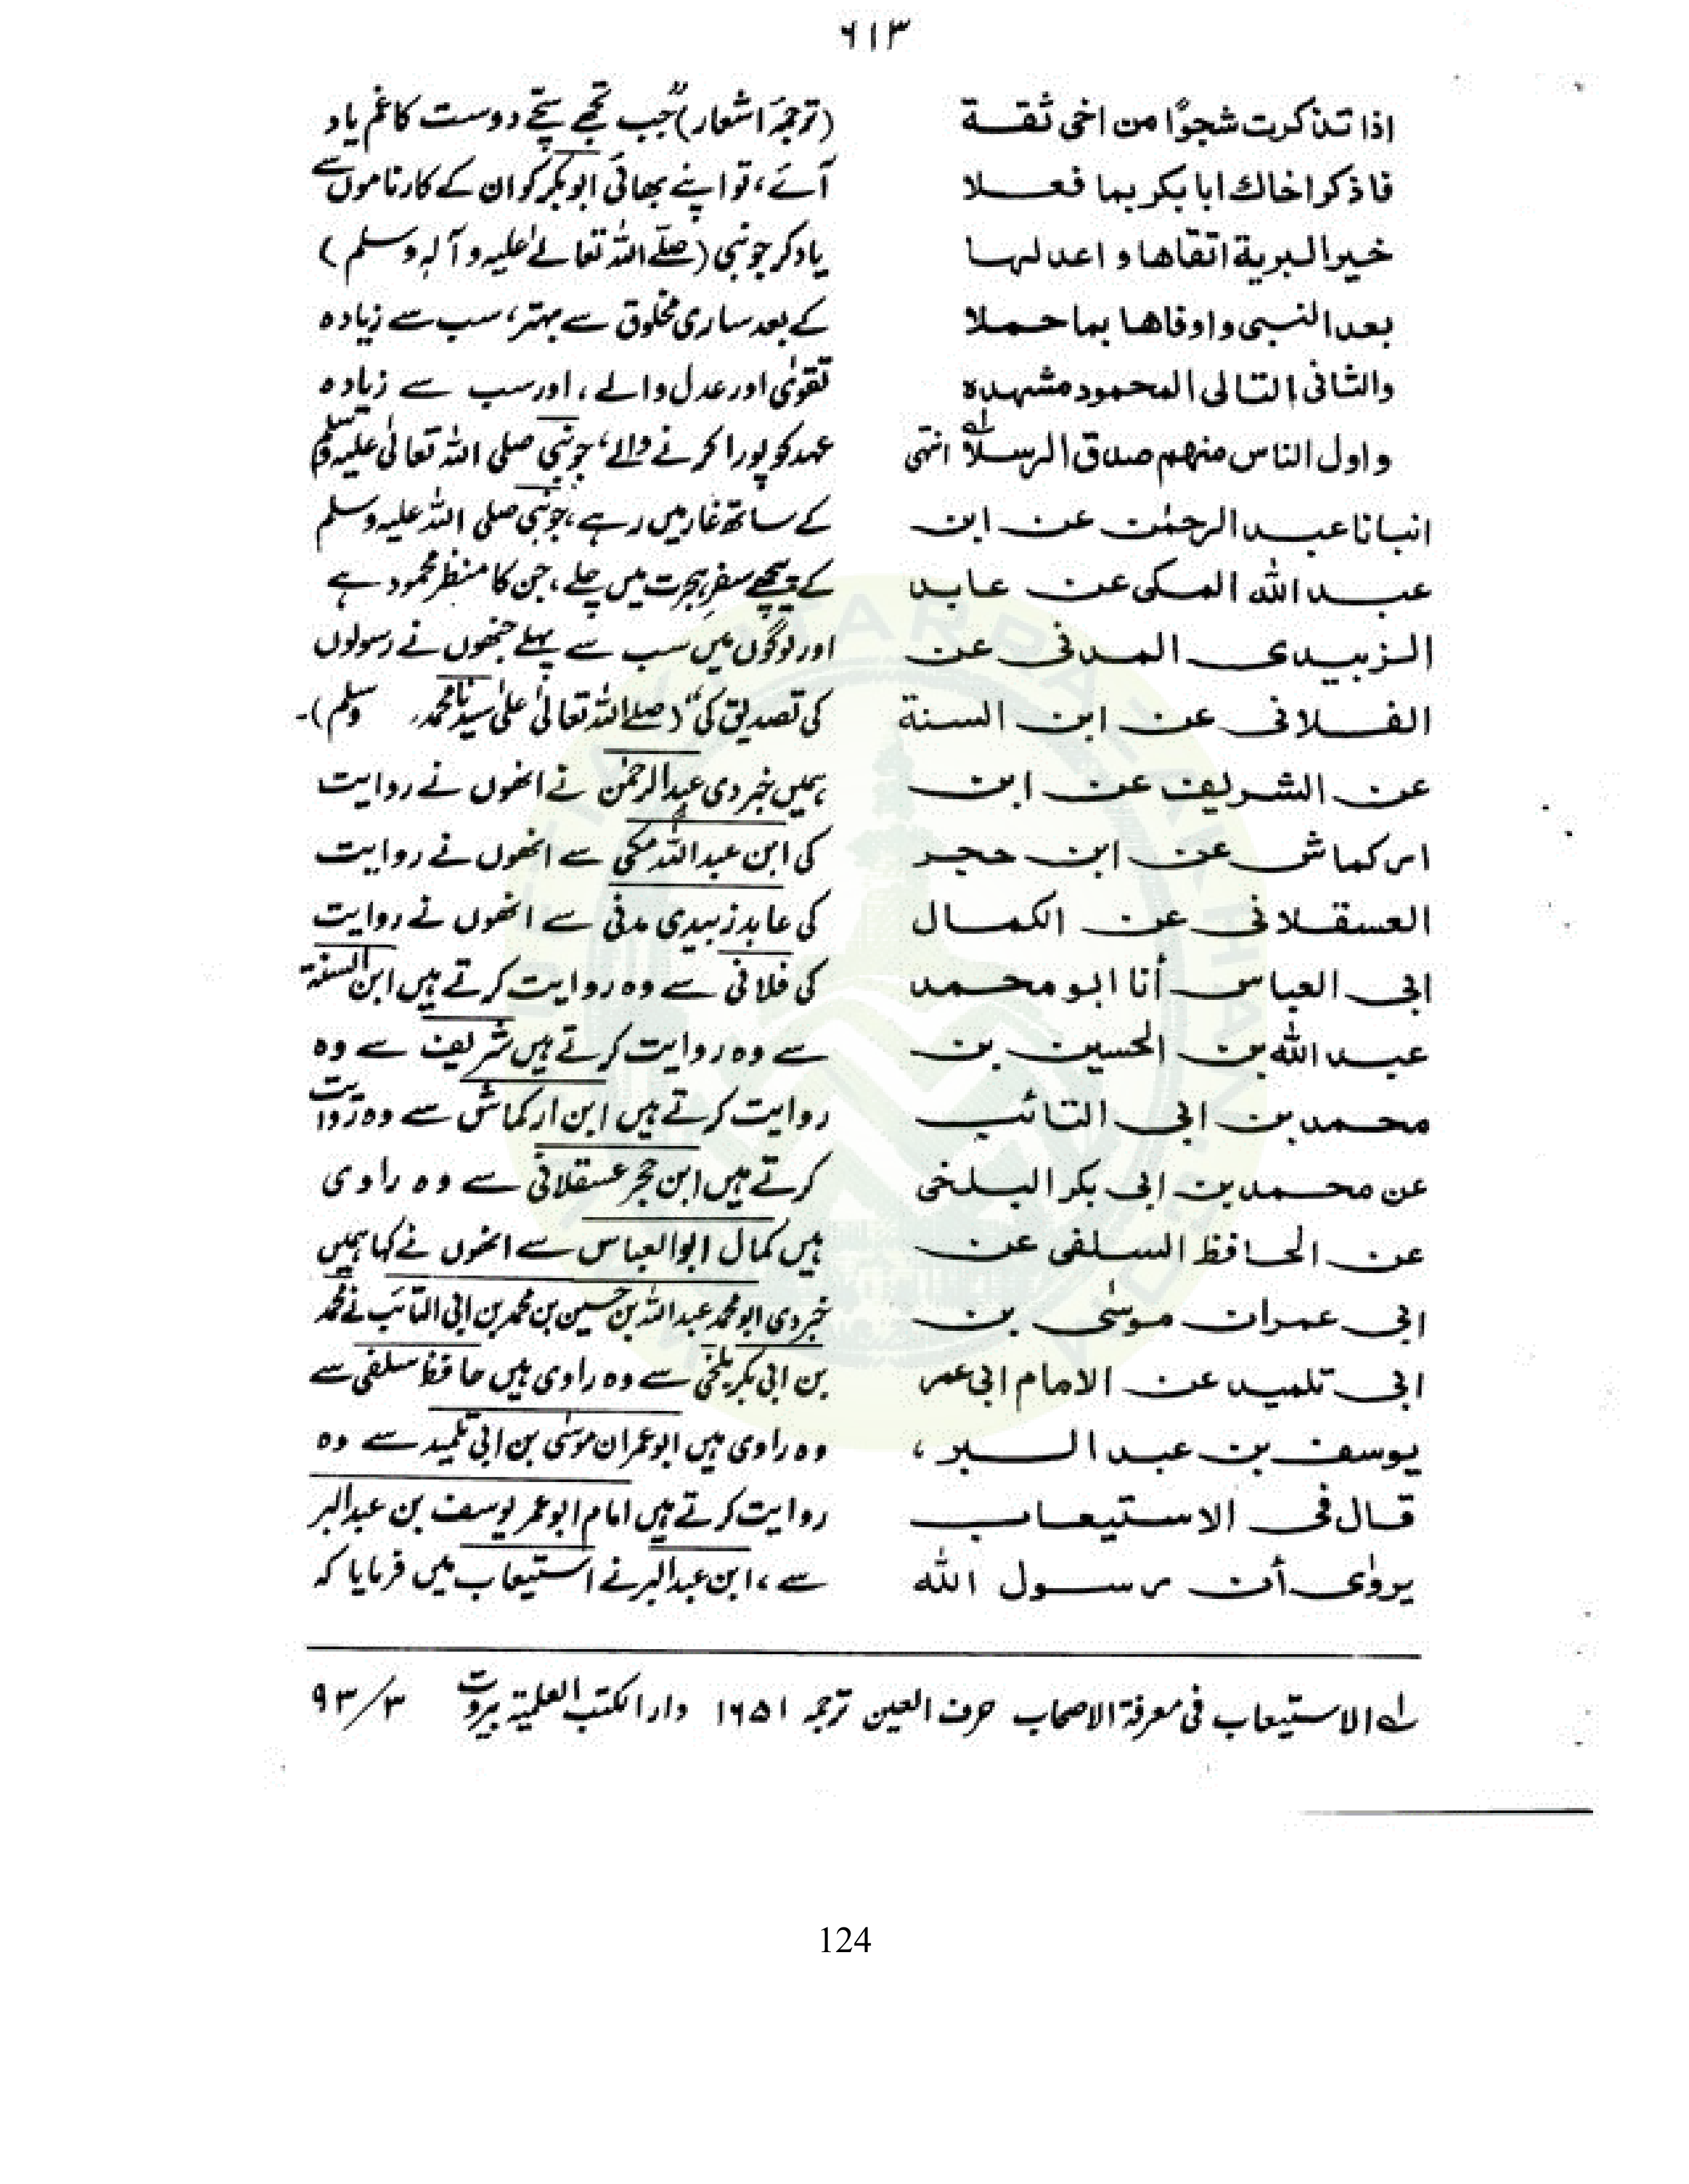 ٦١٣
اذا تذكرت شجوًا من اخی ثقة
فاذكر اخاك ابا بكر بما فعلا
خير البرية اتقاها و اعدلها
بعد النبی و اوفاها بما حملا
والثانی التالی المحمود مشهده
و اول الناس منهم صدق الرسلا لہ انتہی
انبانا عبد الرحمٰن عن ابن
عبد الله المکی عن عابد
الزبیدی المدنی عن
الفلانی عن ابن السنة
عن الشریف عن ابن
ارکماش عن ابن حجر
العسقلانی عن الکمال
ابی العباس أنا ابو محمد
عبد الله بن الحسین بن
محمد بن ابی التائب
عن محمد بن ابی بکر البلخی
عن الحافظ السلفی عن
ابی عمران موسٰی بن
ابی تلمید عن الامام ابی عمر
یوسف بن عبد البر ،
قال فی الاستیعاب
یروٰی أن رسول الله
(ترجمہ اشعار) "جب تجھے سچے دوست کا غم یاد
آئے، تو اپنے بھائی ابو بکر کو ان کے کارناموں سے
یاد کر جو نبی (صلے اللہ تعالےٰ علیہ و آلہ وسلم)
کے بعد ساری مخلوق سے بہتر، سب سے زیادہ
تقوٰی اور عدل والے، اور سب سے زیادہ
عہد کو پورا کرنے والے، جو نبی صلی اللہ تعالیٰ علیہ وسلم
کے ساتھ غار میں رہے، جو نبی صلی اللہ علیہ وسلم
کے پیچھے سفرِ ہجرت میں چلے، جن کا منظر محمود ہے
اور لوگوں میں سب سے پہلے جنھوں نے رسولوں
کی تصدیق کی" (صلے اللہ تعالیٰ علیٰ سیدنا محمد، وسلم)۔
ہمیں خبر دی عبدالرحمٰن نے انھوں نے روایت
کی ابن عبداللہ مکی سے انھوں نے روایت
کی عابد زبیدی مدنی سے انھوں نے روایت
کی فلانی سے وہ روایت کرتے ہیں ابن السنۃ
سے وہ روایت کرتے ہیں شریف سے وہ
روایت کرتے ہیں ابن ارکماش سے وہ روایت
کرتے ہیں ابن حجر عسقلانی سے وہ راوی
ہیں کمال ابوالعباس سے انھوں نے کہا ہمیں
خبر دی ابو محمد عبداللہ بن حسین بن محمد بن ابی التائب نے محمد
بن ابی بکر بلخی سے وہ راوی ہیں حافظ سلفی سے
وہ راوی ہیں ابو عمران موسٰی بن ابی تلمید سے وہ
روایت کرتے ہیں امام ابو عمر یوسف بن عبدالبر
سے، ابن عبدالبر نے استیعاب میں فرمایا کہ
لہ الاستیعاب فی معرفۃ الاصحاب حرف العین ترجمہ ١٦٥١ دارالکتب العلمیۃ بیروت ٣/٩٣
124